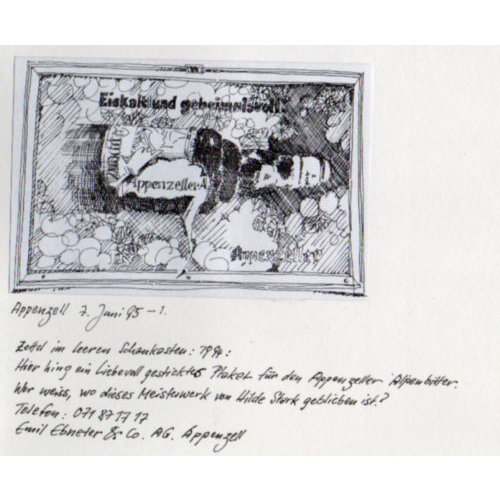 Eiskalt und geheimnisvoll!
Appenzeller
Appenzeller
Appenzell 7. Juni 95 – 1.
Zettel im leeren Schaukasten: 1994:
Hier hing ein Liebevoll gesticktes Plakat für den Appenzeller Alpenbitter.
Wer weiss, wo dieses Meisterwerk von Hilde Stork geblieben ist?
Telefon: 071 87 17 17
Emil Ebneter & Co. AG. Appenzell